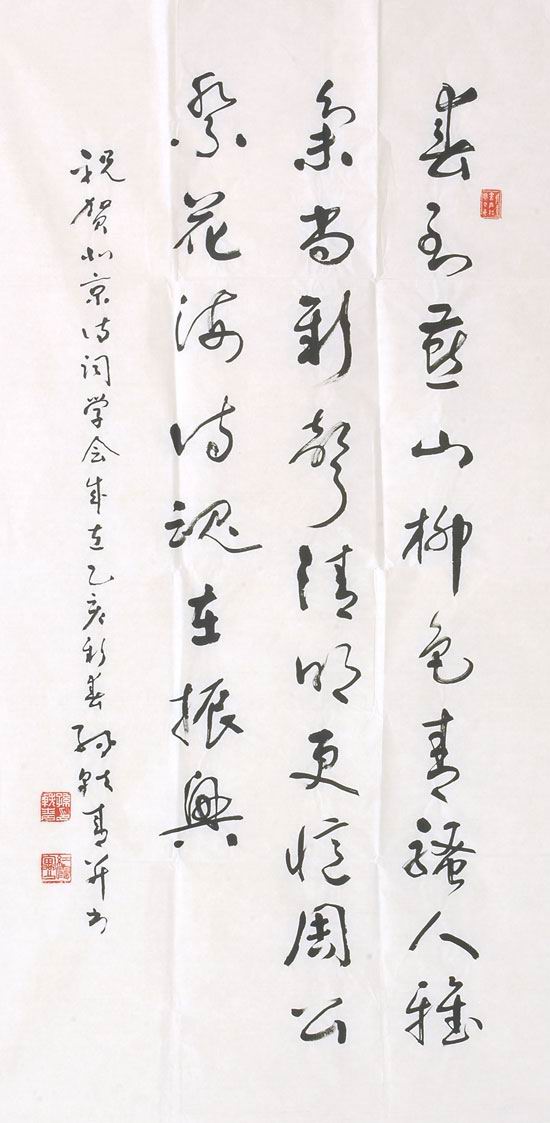 春到燕山柳色青騷人雅
集尚新聲清明更憶周公
祭花海诗魂在振興
祝贺北京诗词学会成立乙亥新春孙轶青并书